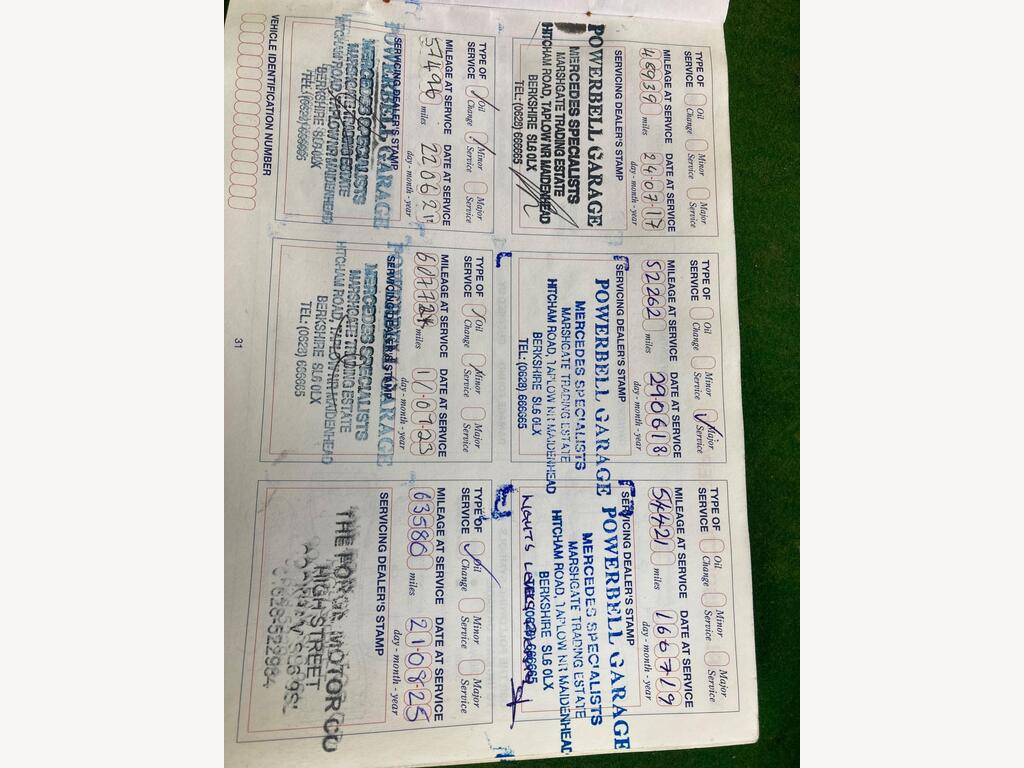 TYPE OF SERVICE Oil Change Minor Service Major Service
MILEAGE AT SERVICE DATE AT SERVICE
48939 miles 240717
day - month - year
SERVICING DEALER'S STAMP
POWERBELL GARAGE
MERCEDES SPECIALISTS
MARSHGATE TRADING ESTATE
HITCHAM ROAD, TAPLOW NR MAIDENHEAD
BERKSHIRE SL6 0LX
TEL: (0628) 666665
TYPE OF SERVICE Oil Change Minor Service Major Service
MILEAGE AT SERVICE DATE AT SERVICE
52262 miles 290618
day - month - year
SERVICING DEALER'S STAMP
POWERBELL GARAGE
MERCEDES SPECIALISTS
MARSHGATE TRADING ESTATE
HITCHAM ROAD, TAPLOW NR MAIDENHEAD
BERKSHIRE SL6 0LX
TEL: (0628) 666665
TYPE OF SERVICE Oil Change Minor Service Major Service
MILEAGE AT SERVICE DATE AT SERVICE
54421 miles 160719
day - month - year
SERVICING DEALER'S STAMP
POWERBELL GARAGE
MERCEDES SPECIALISTS
MARSHGATE TRADING ESTATE
HITCHAM ROAD, TAPLOW NR MAIDENHEAD
BERKSHIRE SL6 0LX
TEL: (0628) 666665
TYPE OF SERVICE Oil Change Minor Service Major Service
MILEAGE AT SERVICE DATE AT SERVICE
57496 miles 220621
day - month - year
SERVICING DEALER'S STAMP
POWERBELL GARAGE
MERCEDES SPECIALISTS
MARSHGATE TRADING ESTATE
HITCHAM ROAD, TAPLOW NR MAIDENHEAD
BERKSHIRE SL6 0LX
TEL: (0628) 666665
TYPE OF SERVICE Oil Change Minor Service Major Service
MILEAGE AT SERVICE DATE AT SERVICE
miles
day - month - year
SERVICING DEALER'S STAMP
POWERBELL GARAGE
MERCEDES SPECIALISTS
MARSHGATE TRADING ESTATE
HITCHAM ROAD, TAPLOW NR MAIDENHEAD
BERKSHIRE SL6 0LX
TEL: (0628) 666665
TYPE OF SERVICE Oil Change Minor Service Major Service
MILEAGE AT SERVICE DATE AT SERVICE
63580 miles 210825
day - month - year
SERVICING DEALER'S STAMP
MOTOR CO
HIGH STREET
VEHICLE IDENTIFICATION NUMBER
31